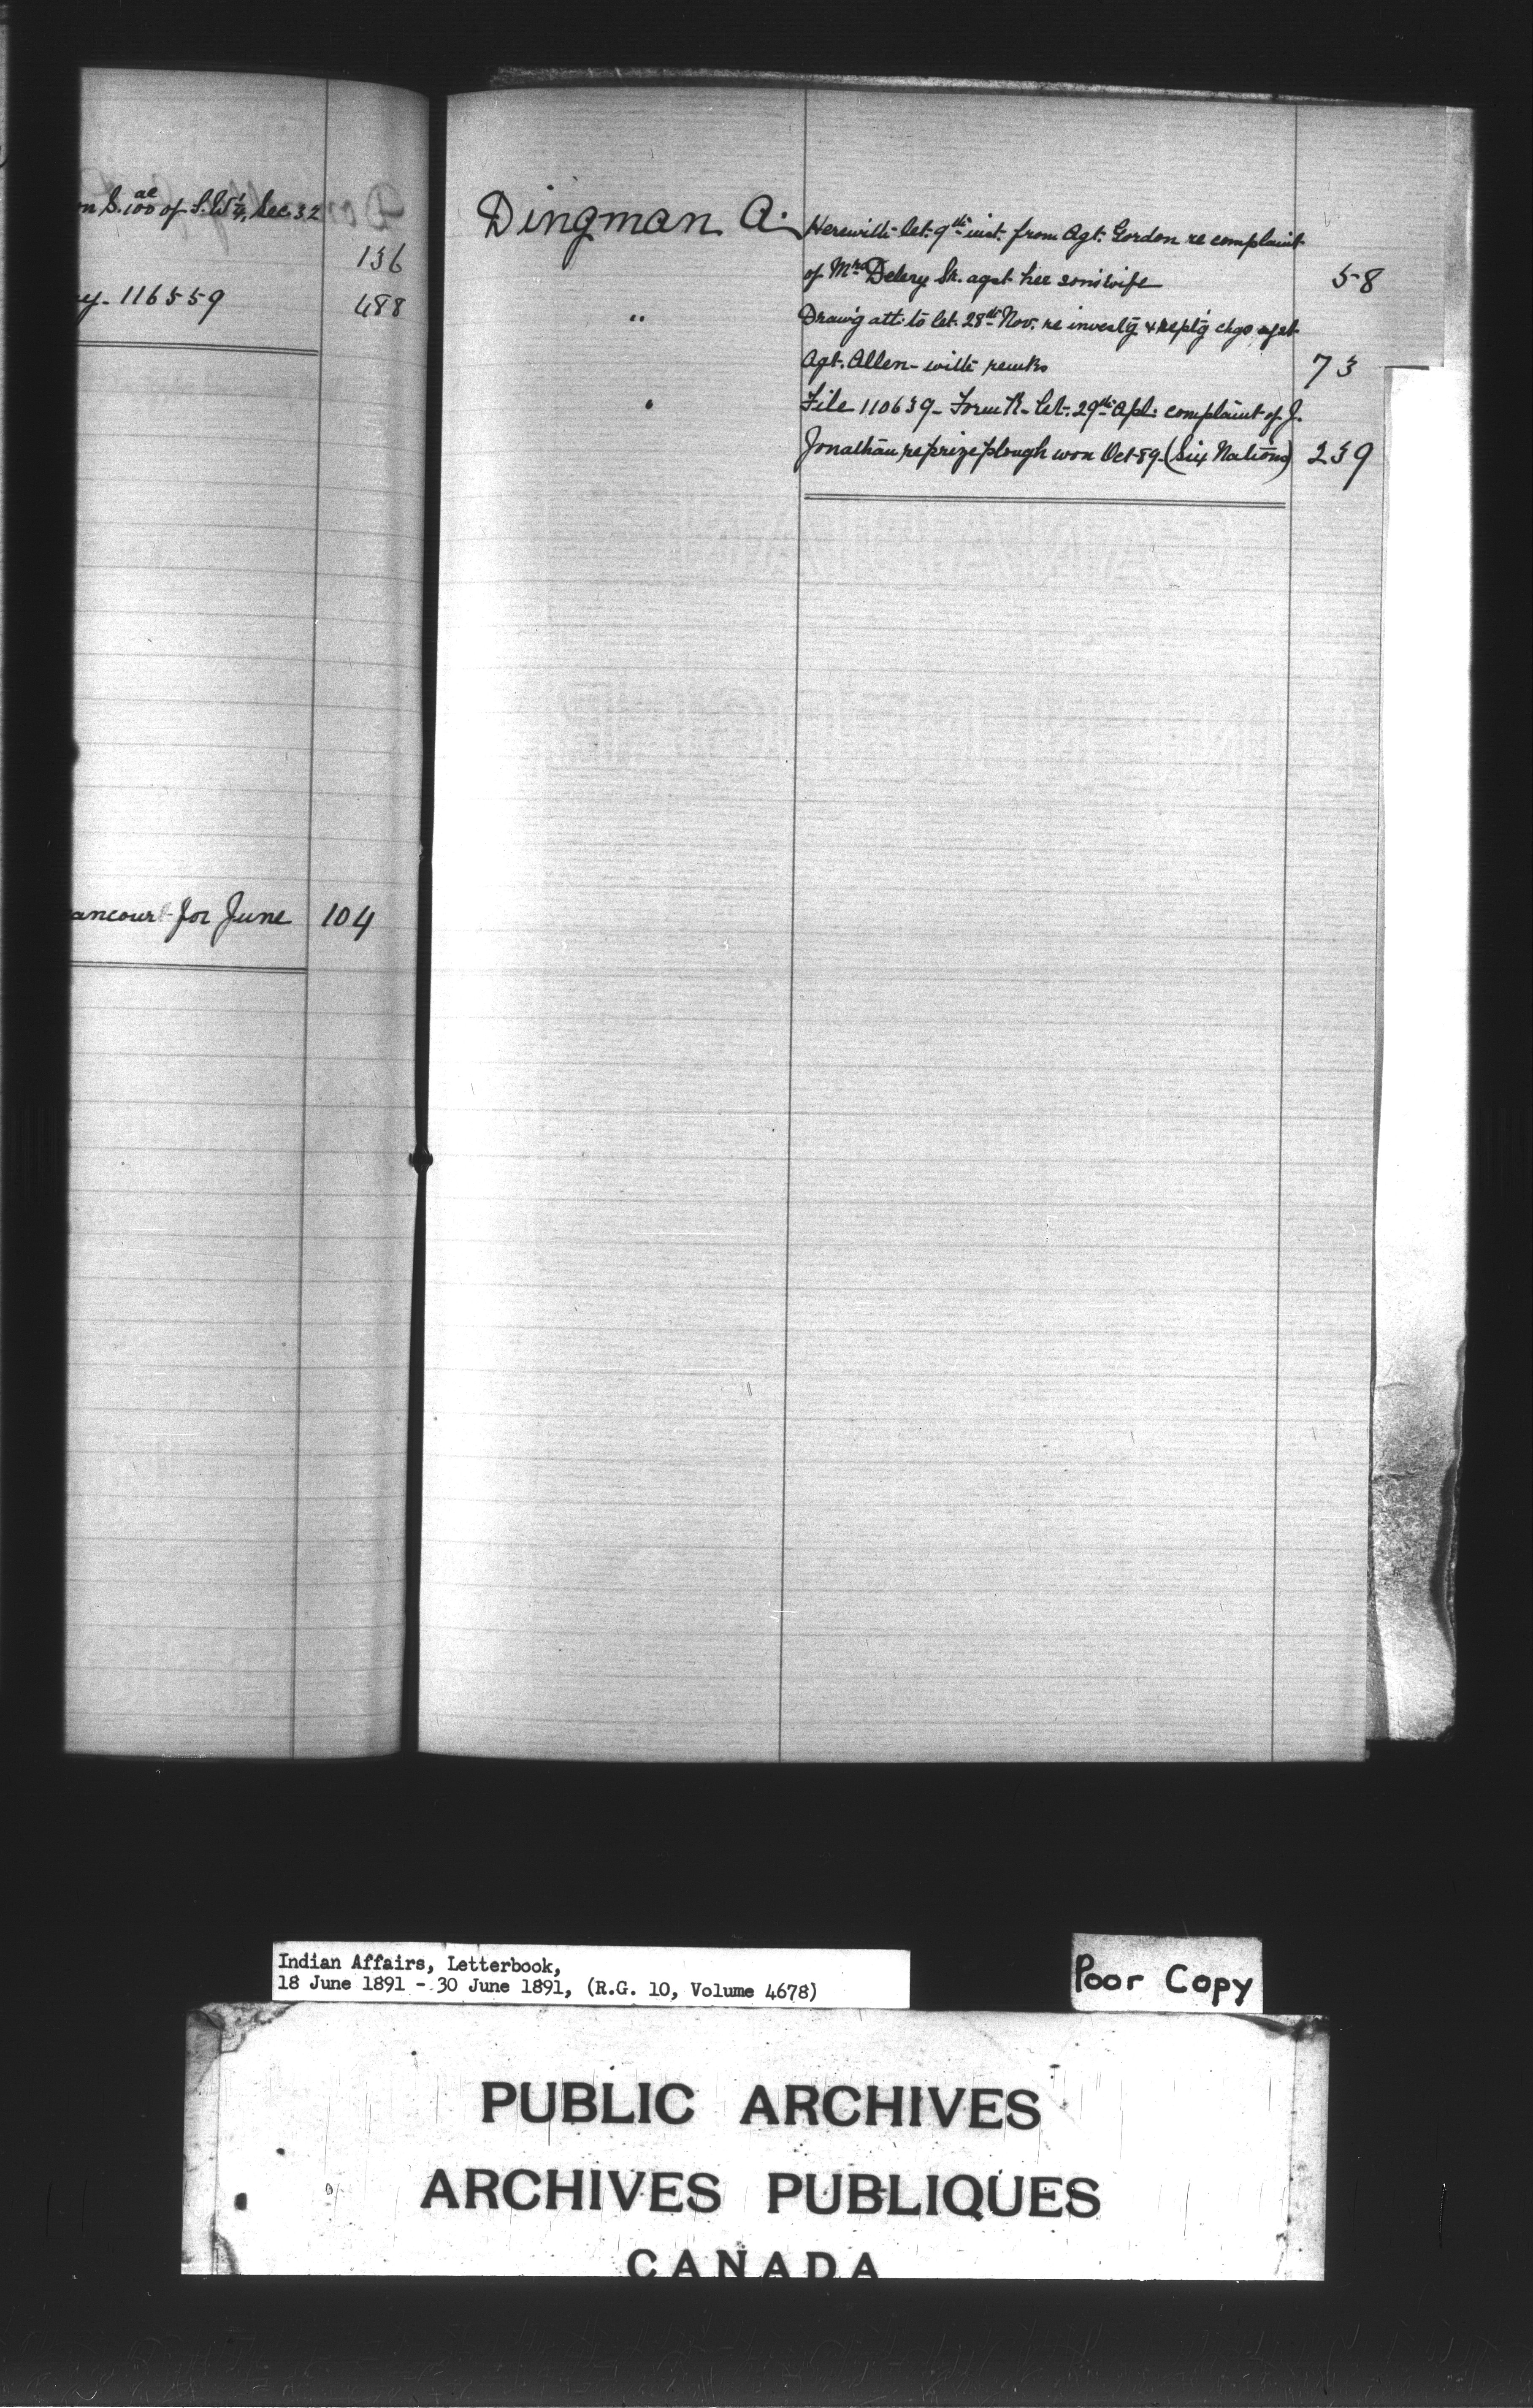 n S. 100 ac of S.W ¼, Sec. 32
136
y. 116559 488
ancourt for June 104
Dingman A. Herewith let. 9th inst. from Agt. Gordon re complaint
of Mrs Delery Sr. agst her son's wife 58
" Drawg att. to let. 28th Nov. re investg & reptg chgs agst
Agt. Allen - with remks 73
" File 110639 - Form R - let. 29th Apl. complaint of J.
Jonathan re prize plough won Oct 89. (Six Nations) 239
Indian Affairs, Letterbook,
18 June 1891 - 30 June 1891, (R.G. 10, Volume 4678)
Poor Copy
PUBLIC ARCHIVES
ARCHIVES PUBLIQUES
CANADA